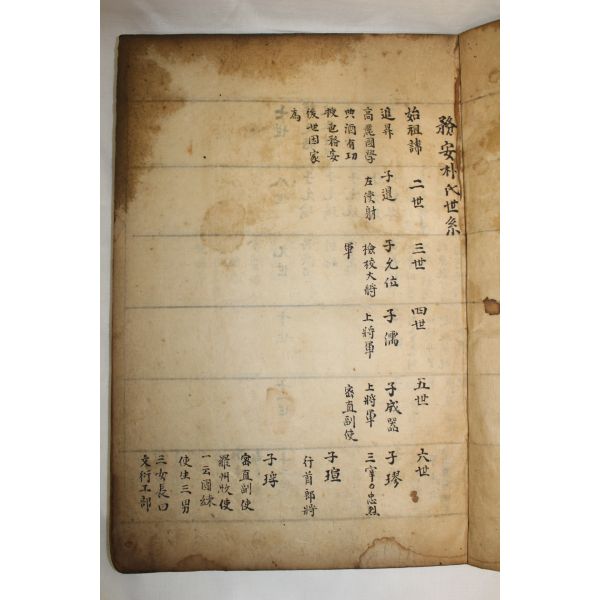 務安朴氏世系
始祖諱
進昇
高麗國學
典酒有功
務安
後世因家
焉
二世
子暹
左僕射
三世
子允位
撿校大將
軍
四世
子濡
上將軍
五世
子成器
上將軍
密直副使
六世
子璆
三宰 忠烈
子瑄
行首郎將
子琈
密直副使
羅州牧使
一云國
使生三男
三女長曰
文衍工部